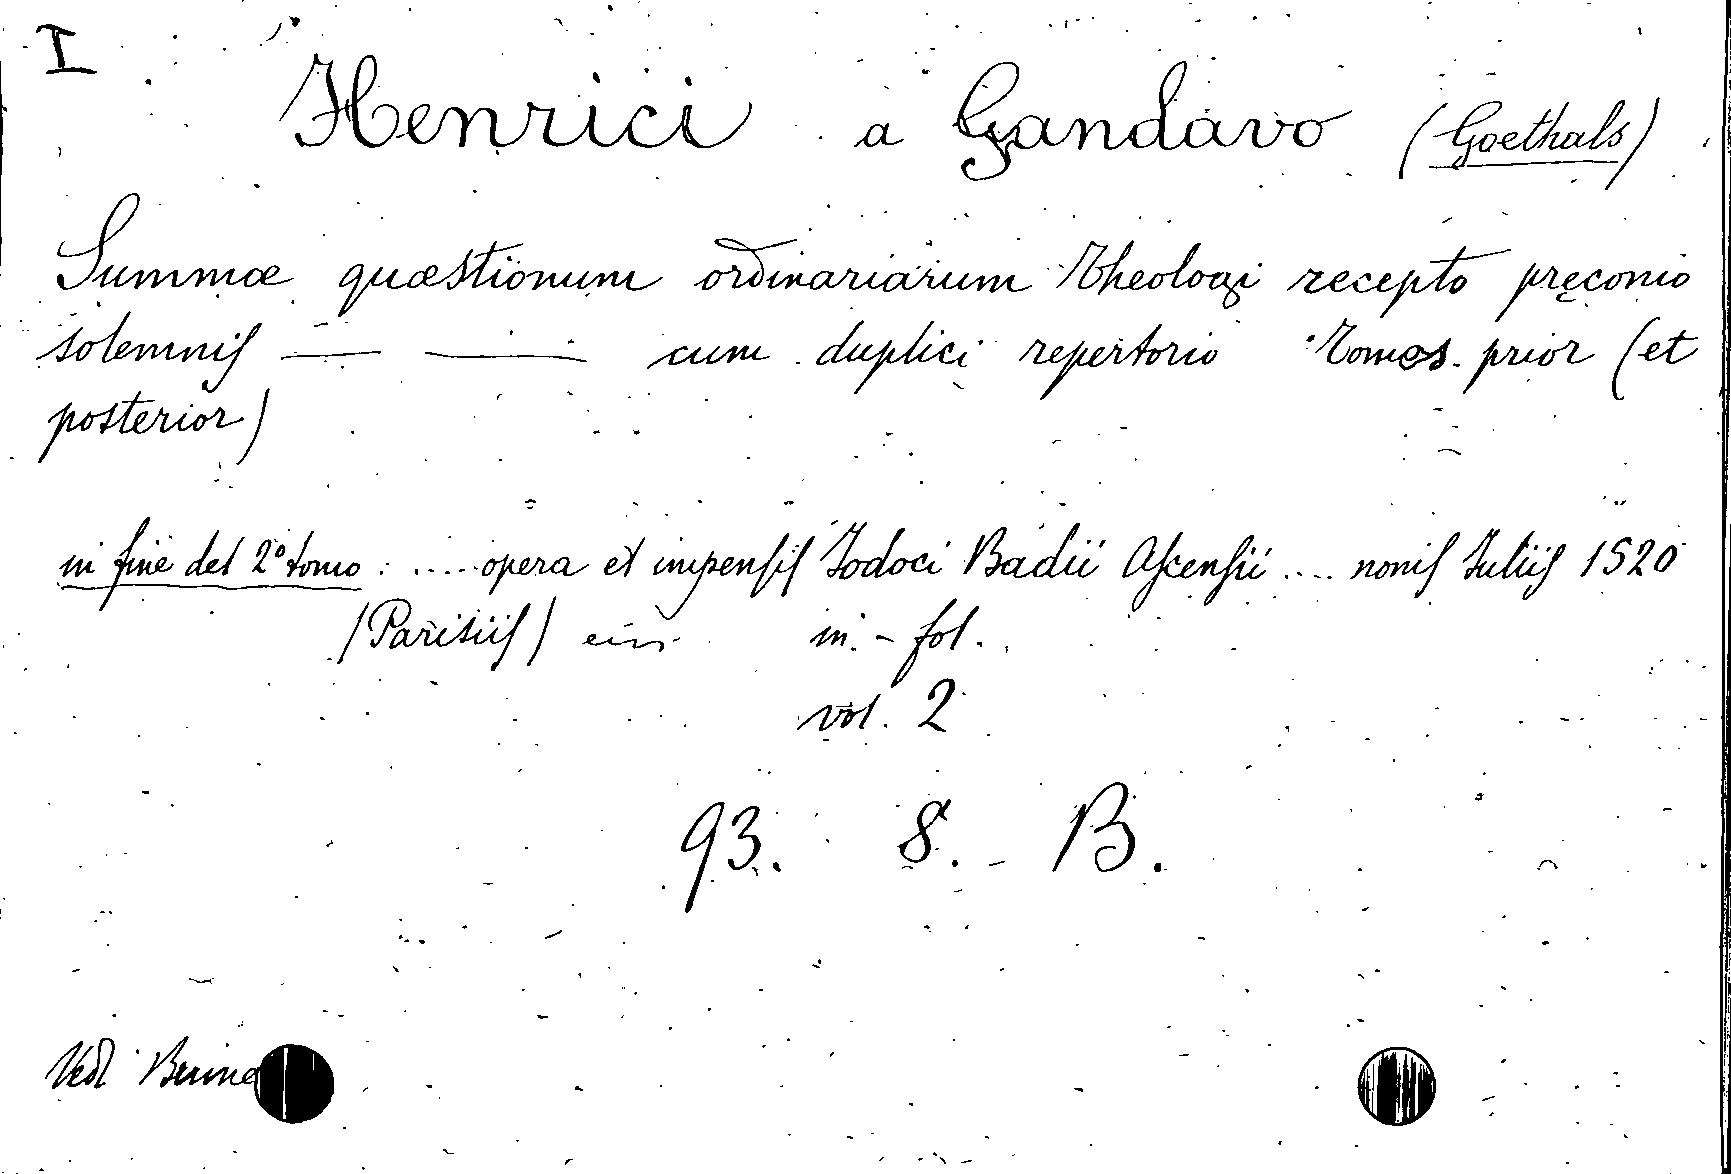 I
Henrici a Gandavo (Goethals)
Summæ quæstionum ordinariarum Theologi recepto pręconio
solemnis — — cum duplici repertorio Tomos prior (et
posterior)
in fine del 2° tomo: ..... opera et impensis Jodoci Badii Ascensii .... nonis Juliis 1520
(Parisiis) in-fol.
vol. 2
93. 8. B.
Vedi